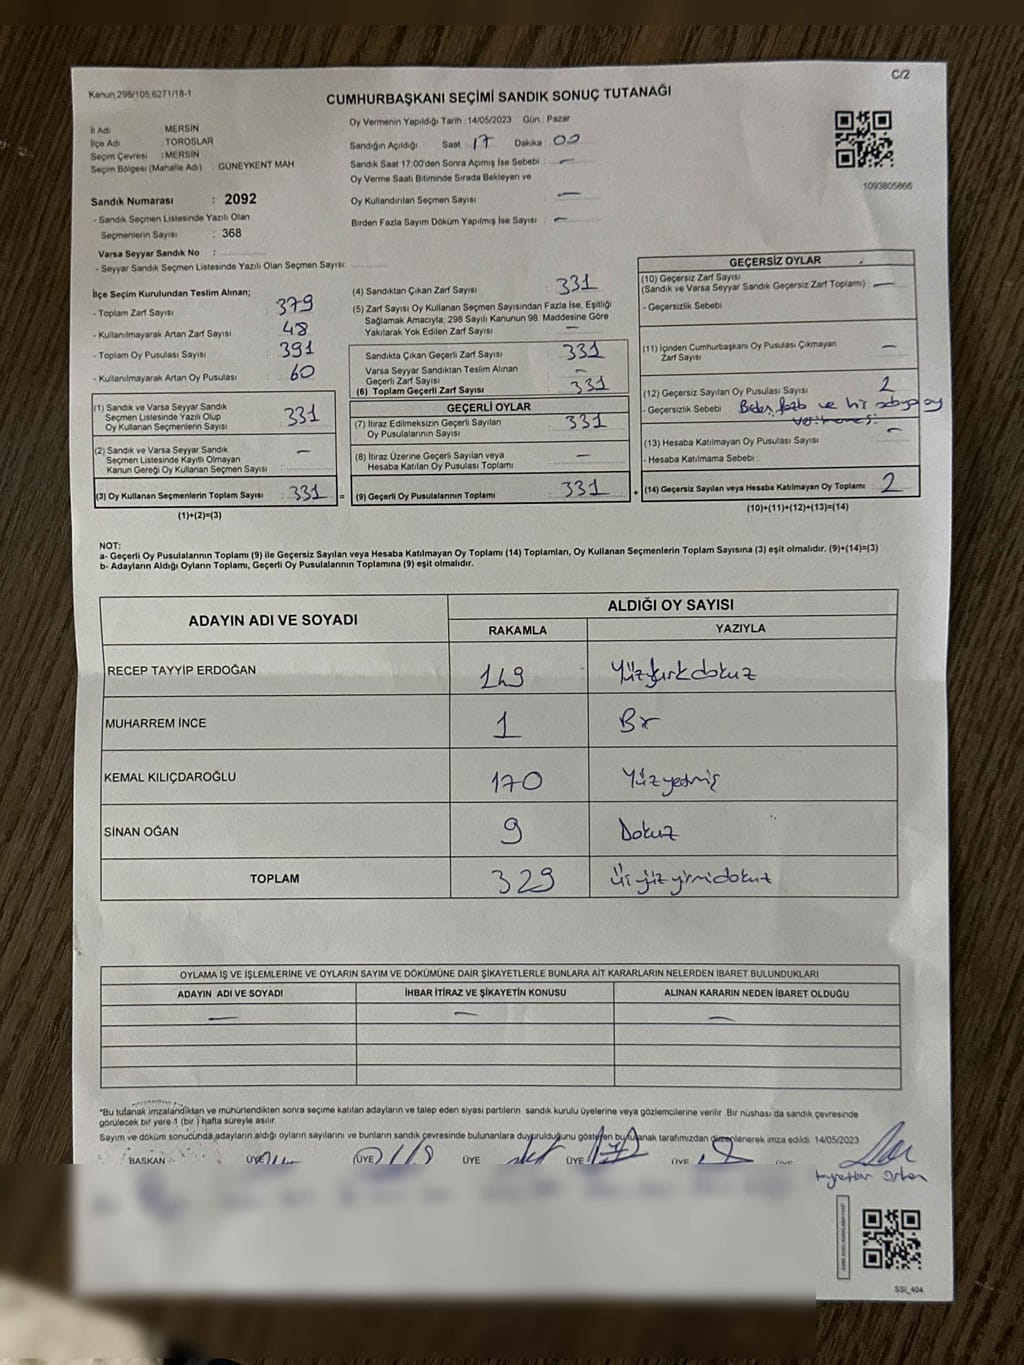 C/2
Kanun 298/105.6271/18-1
CUMHURBAŞKANI SEÇİMİ SANDIK SONUÇ TUTANAĞI
İl Adı MERSİN
İlçe Adı TOROSLAR
Seçim Çevresi : MERSİN
Seçim Bölgesi (Mahalle Adı) GÜNEYKENT MAH
Oy Vermenin Yapıldığı Tarih : 14/05/2023 Gün : Pazar
Sandığın Açıldığı Saat 17 Dakika 00
Sandık Saat 17.00'den Sonra Açımış İse Sebebi —
Oy Verme Saati Bitiminde Sırada Bekleyen ve
Oy Kullandırılan Seçmen Sayısı —
Birden Fazla Sayım Döküm Yapılmış İse Sayısı —
1093805866
Sandık Numarası : 2092
- Sandık Seçmen Listesinde Yazılı Olan
Seçmenlerin Sayısı : 368
Varsa Seyyar Sandık No :
- Seyyar Sandık Seçmen Listesinde Yazılı Olan Seçmen Sayısı:
İlçe Seçim Kurulundan Teslim Alınan;
- Toplam Zarf Sayısı 379
- Kullanılmayarak Artan Zarf Sayısı 48
- Toplam Oy Pusulası Sayısı 391
- Kullanılmayarak Artan Oy Pusulası 60
(1) Sandık ve Varsa Seyyar Sandık
Seçmen Listesinde Yazılı Olup
Oy Kullanan Seçmenlerin Sayısı 331
(2) Sandık ve Varsa Seyyar Sandık
Seçmen Listesinde Kayıtlı Olmayan
Kanun Gereği Oy Kullanan Seçmen Sayısı —
(3) Oy Kullanan Seçmenlerin Toplam Sayısı : 331 =
(1)+(2)=(3)
(4) Sandıktan Çıkan Zarf Sayısı 331
(5) Zarf Sayısı Oy Kullanan Seçmen Sayısından Fazla İse, Eşitliği
Sağlamak Amacıyla; 298 Sayılı Kanunun 98. Maddesine Göre
Yakılarak Yok Edilen Zarf Sayısı —
Sandıkta Çıkan Geçerli Zarf Sayısı 331
Varsa Seyyar Sandıktan Teslim Alınan
Geçerli Zarf Sayısı —
(6) Toplam Geçerli Zarf Sayısı 331
GEÇERLİ OYLAR
(7) İtiraz Edilmeksizin Geçerli Sayılan
Oy Pusulalarının Sayısı 331
(8) İtiraz Üzerine Geçerli Sayılan veya
Hesaba Katılan Oy Pusulası Toplamı —
(9) Geçerli Oy Pusulalarının Toplamı 331 +
GEÇERSİZ OYLAR
(10) Geçersiz Zarf Sayısı
(Sandık ve Varsa Seyyar Sandık Geçersiz Zarf Toplamı) : —
- Geçersizlik Sebebi :
(11) İçinden Cumhurbaşkanı Oy Pusulası Çıkmayan
Zarf Sayısı —
(12) Geçersiz Sayılan Oy Pusulası Sayısı 2
- Geçersizlik Sebebi Birden fazla ve hiç adaya oy
verilmemesi
(13) Hesaba Katılmayan Oy Pusulası Sayısı —
- Hesaba Katılmama Sebebi :
(14) Geçersiz Sayılan veya Hesaba Katılmayan Oy Toplamı : 2
(10)+(11)+(12)+(13)=(14)
NOT:
a- Geçerli Oy Pusulalarının Toplamı (9) ile Geçersiz Sayılan veya Hesaba Katılmayan Oy Toplamı (14) Toplamları, Oy Kullanan Seçmenlerin Toplam Sayısına (3) eşit olmalıdır. (9)+(14)=(3)
b- Adayların Aldığı Oyların Toplamı, Geçerli Oy Pusulalarının Toplamına (9) eşit olmalıdır.
ADAYIN ADI VE SOYADI ALDIĞI OY SAYISI
RAKAMLA YAZIYLA
RECEP TAYYİP ERDOĞAN 149 Yüzkırkdokuz
MUHARREM İNCE 1 Bir
KEMAL KILIÇDAROĞLU 170 Yüzyetmiş
SİNAN OĞAN 9 Dokuz
TOPLAM 329 Üçyüzyirmidokuz
OYLAMA İŞ VE İŞLEMLERİNE VE OYLARIN SAYIM VE DÖKÜMÜNE DAİR ŞİKAYETLERLE BUNLARA AİT KARARLARIN NELERDEN İBARET BULUNDUKLARI
ADAYIN ADI VE SOYADI İHBAR İTİRAZ VE ŞİKAYETİN KONUSU ALINAN KARARIN NEDEN İBARET OLDUĞU
— — —
*Bu tutanak imzalandıktan ve mühürlendikten sonra seçime katılan adayların ve talep eden siyasi partilerin sandık kurulu üyelerine veya gözlemcilerine verilir .Bir nüshası da sandık çevresinde
görülecek bir yere 1 (bir ) hafta süreyle asılır.
Sayım ve döküm sonucunda adayların aldığı oyların sayılarını ve bunların sandık çevresinde bulunanlara duyurulduğunu gösteren bu tutanak tarafımızdan düzenlenerek imza edildi. 14/05/2023
BAŞKAN ÜYE ÜYE ÜYE ÜYE ÜYE ÜYE
SSI_404